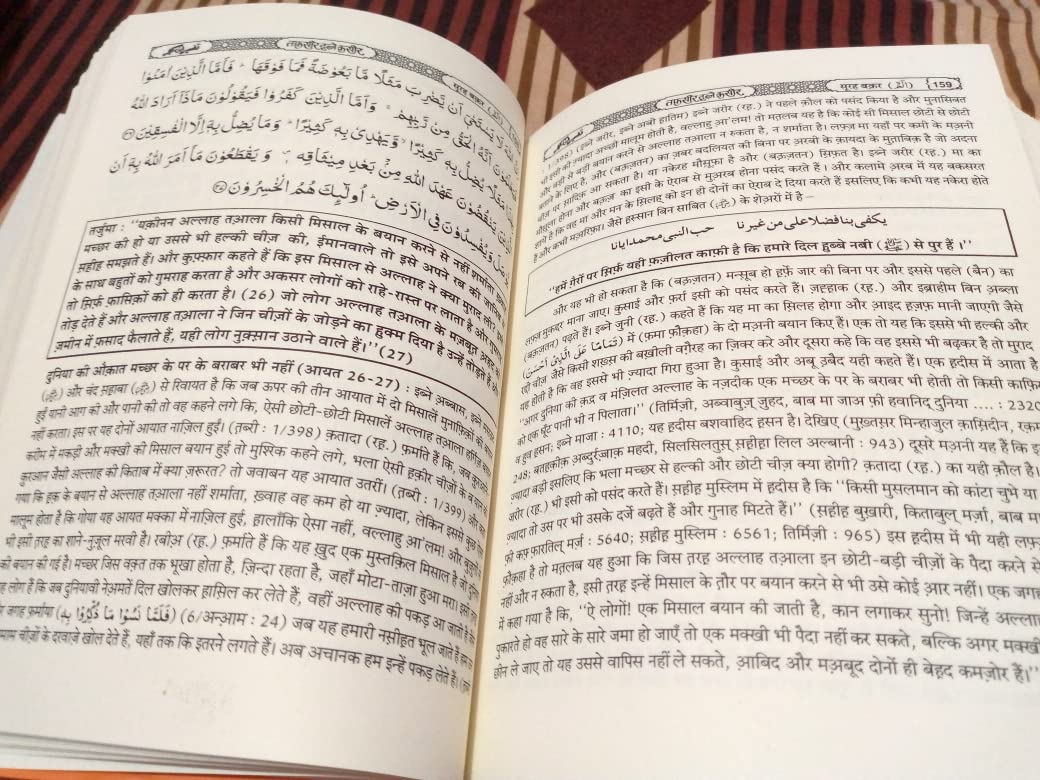 तफ़्सीर इब्ने क़सीर
सूरह बक़रः
اللهَ لَا يَسْتَحْيٖٓ اَنْ يَّضْرِبَ مَثَلًا مَّا بَعُوْضَةً فَمَا فَوْقَهَا ۗ فَاَمَّا الَّذِيْنَ اٰمَنُوْا
اَنَّهُ الْحَقُّ مِنْ رَّبِّهِمْ ۚ وَاَمَّا الَّذِيْنَ كَفَرُوْا فَيَقُوْلُوْنَ مَاذَآ اَرَادَ اللهُ
مَثَلًا ۘ يُضِلُّ بِهٖ كَثِيْرًا ۙ وَّيَهْدِيْ بِهٖ كَثِيْرًا ۗ وَمَا يُضِلُّ بِهٖٓ اِلَّا الْفٰسِقِيْنَ
يَنْقُضُوْنَ عَهْدَ اللهِ مِنْۢ بَعْدِ مِيْثَاقِهٖ ۪ وَيَقْطَعُوْنَ مَآ اَمَرَ اللهُ بِهٖٓ اَنْ
وَيُفْسِدُوْنَ فِي الْاَرْضِ ۗ اُولٰٓئِكَ هُمُ الْخٰسِرُوْنَ
तर्जुमा : ''यक़ीनन अल्लाह तआ़ला किसी मिसाल के बयान करने से नहीं शर्माता
मच्छर की हो या उससे भी हल्की चीज़ की, ईमानवाले तो इसे अपने रब की जानिब
सहीह समझते हैं। और कुफ़्फ़ार कहते हैं कि इस मिसाल से अल्लाह ने क्या मुराद ली?
के साथ बहुतों को गुमराह करता है और अकसर लोगों को राहे-रास्त पर लाता है और
तो सिर्फ़ फ़ासिक़ों को ही करता है। (26) जो लोग अल्लाह तआ़ला के मज़बूत अ़हद
तोड़ देते हैं और अल्लाह तआ़ला ने जिन चीज़ों के जोड़ने का हुक्म दिया है उन्हें तोड़ते हैं
ज़मीन में फ़साद फैलाते हैं, यही लोग नुक़्सान उठाने वाले हैं।''(27)
दुनिया की औक़ात मच्छर के पर के बराबर भी नहीं (आयत 26-27) : इब्ने अ़ब्बास, इब्ने
और चंद सह़ाबा से रिवायत है कि जब ऊपर की तीन आयात में दो मिसालें मुनाफ़िक़ों की
हुई यानी आग की और पानी की तो वह कहने लगे कि, ऐसी छोटी-छोटी मिसालें अल्लाह तआ़ला
नहीं करता। इस पर यह दोनों आयात नाज़िल हुईं। (तब्री : 1/398) क़तादा (रह.) फ़र्माते हैं कि, जब
करीम में मकड़ी और मक्खी की मिसाल बयान हुई तो मुश्रिक कहने लगे, भला ऐसी हक़ीर चीज़ों के
क़ुरआन जैसी अल्लाह की किताब में क्या ज़रूरत? तो जवाबन यह आयात उतरीं। (तब्री : 1/399) और
गया कि हक़ के बयान से अल्लाह तआ़ला नहीं शर्माता, ख़्वाह वह कम हो या ज़्यादा, लेकिन इससे
मालूम होता है कि गोया यह आयात मक्का में नाज़िल हुई, हालाँकि ऐसा नहीं, वल्लाहु आ'लम! और
भी इसी तरह का शाने-नुज़ूल मरवी है। रबीअ़ (रह.) फ़र्माते हैं कि यह ख़ुद एक मुस्तक़िल मिसाल है जो
की बयान की गई है। मच्छर जिस वक़्त तक भूखा होता है, ज़िन्दा रहता है, जहाँ मोटा-ताज़ा हुआ मरा।
लोग हैं कि जब दुनियावी नेअ़मतें दिल खोलकर हासिल कर लेते हैं, वहीं अल्लाह की पकड़ आ जाती है
जगह फ़र्माया (فَلَمَّا نَسُوْا مَا ذُكِّرُوْا بِهٖ) (6/अन्आ़म : 24) जब यह हमारी नस़ीह़त भूल जाते हैं
चीज़ों के दरवाज़े खोल देते हैं, यहाँ तक कि इतराने लगते हैं। अब अचानक हम इन्हें पकड़ लेते हैं।
तफ़्सीर इब्ने क़सीर
सूरह बक़रः 159
1/398) (इब्ने जरीर, इब्ने अबी हातिम) इब्ने जरीर (रह.) ने पहले क़ौल को पसंद किया है और मुनासिबत
भी इसी की ज़्यादा अच्छी मालूम होती है, वल्लाहु आ'लम! तो मतलब यह है कि कोई सी मिसाल छोटी से छोटी
और बड़ी से बड़ी बयान करने से अल्लाह तआ़ला न रुकता है, न शर्माता है। लफ़्ज़ मा यहाँ पर कमी के मअ़नी
बताने के लिए है, और (बऊ़ज़तन) का ज़बर बदलियत की बिना पर अ़रबी के क़ायदा के मुताबिक़ है जो अदना
चीज़ पर सादिक़ आ सकता है। या नकरह मौसूफ़ा है और (बऊ़ज़तन) सिफ़त है। इब्ने जरीर (रह.) मा का
मौसूला होना और बऊ़ज़ का इसी के ऐराब से मुअ़रब होना पसंद करते हैं। और कलामे अ़रब में यह बकसरत
है कि वह मा और मन के सिलह को इन ही दोनों का ऐराब दे दिया करते हैं इसलिए कि कभी यह नकेरा होते
हैं और कभी मअ़रिफ़ा। जैसे हस्सान बिन साबित के शेअ़रों में है –
يكفى بنا فضلا على من غيرنا حب النبى محمد ايانا
''हमें ग़ैरों पर सिर्फ़ यही फ़ज़ीलत काफ़ी है कि हमारे दिल हुब्बे नबी (ﷺ) से पुर हैं।''
और यह भी हो सकता है कि (बऊ़ज़तन) मन्सूब हो हर्फ़े जार की बिना पर और इससे पहले (बैन) का
लफ़्ज़ मुक़द्दर माना जाए। कुसाई और फ़र्रा इसी को पसंद करते हैं। ज़ह़्ह़ाक (रह.) और इब्राहीम बिन अ़ब्ला
(बऊ़ज़तन) पढ़ते हैं। इब्ने जुनी (रह.) कहते हैं कि यह मा का सिलह होगा और आइद हज़फ़ मानी जाएगी जैसे
(تَمَامًا عَلَى الَّذِيْٓ اَحْسَنَ) में (फ़मा फ़ौक़हा) के दो मअ़नी बयान किए हैं। एक तो यह कि इससे भी हल्की और
रद्दी चीज़ जैसे किसी शख़्स की बख़ीली वग़ैरह का ज़िक्र करे और दूसरा कहे कि वह इससे भी बढ़कर है तो मुराद
यह होती है कि वह इससे भी ज़्यादा गिरा हुआ है। कुसाई और अबू उ़बैद यही कहते हैं। एक हदीस में आता है
''अगर दुनिया की क़द्र व मंज़िलत अल्लाह के नज़दीक एक मच्छर के पर के बराबर भी होती तो किसी काफ़िर
को एक घूँट पानी भी न पिलाता।'' (तिर्मिज़ी, अब्वाबुज़् ज़ुहद, बाब मा जाअ फ़ी हवानिद् दुनिया .... : 2320
व हुव हसन; इब्ने माजा : 4110; यह हदीस बशवाहिद हसन है। देखिए (मुख़्तसर मिन्हाजुल क़ासिदीन, रक़म
248; बतहक़ीक़ अब्दुर्रज़्ज़ाक़ महदी, सिलसिलतुस् सहीहा लिल अल्बानी : 943) दूसरे मअ़नी यह हैं कि इससे
ज़्यादा बड़ी इसलिए कि भला मच्छर से हल्की और छोटी चीज़ क्या होगी? क़तादा (रह.) का यही क़ौल है।
जरीर (रह.) भी इसी को पसंद करते हैं। सहीह मुस्लिम में हदीस है कि ''किसी मुसलमान को काँटा चुभे या
ज़्यादा तो उस पर भी उसके दर्जे बढ़ते हैं और गुनाह मिटते हैं।'' (सहीह बुख़ारी, किताबुल् मर्ज़ा, बाब मा
फ़ी कफ़्फ़ारतिल् मर्ज़ : 5640; सहीह मुस्लिम : 6561; तिर्मिज़ी : 965) इस हदीस में भी यही लफ़्ज़
फ़ौक़हा है तो मतलब यह हुआ कि जिस तरह अल्लाह तआ़ला इन छोटी-बड़ी चीज़ों के पैदा करने से
नहीं और न रुकता है, इसी तरह इन्हें मिसाल के तौर पर बयान करने से भी उसे कोई आर नहीं। एक जगह
में कहा गया है कि, ''ऐ लोगों! एक मिसाल बयान की जाती है, कान लगाकर सुनो! जिन्हें अल्लाह
पुकारते हो वह सारे के सारे जमा हो जाएँ तो एक मक्खी भी पैदा नहीं कर सकते, बल्कि अगर मक्खी
छीन ले जाए तो यह उससे वापिस नहीं ले सकते, आ़बिद और मअ़बूद दोनों ही बेहद कमज़ोर हैं।''